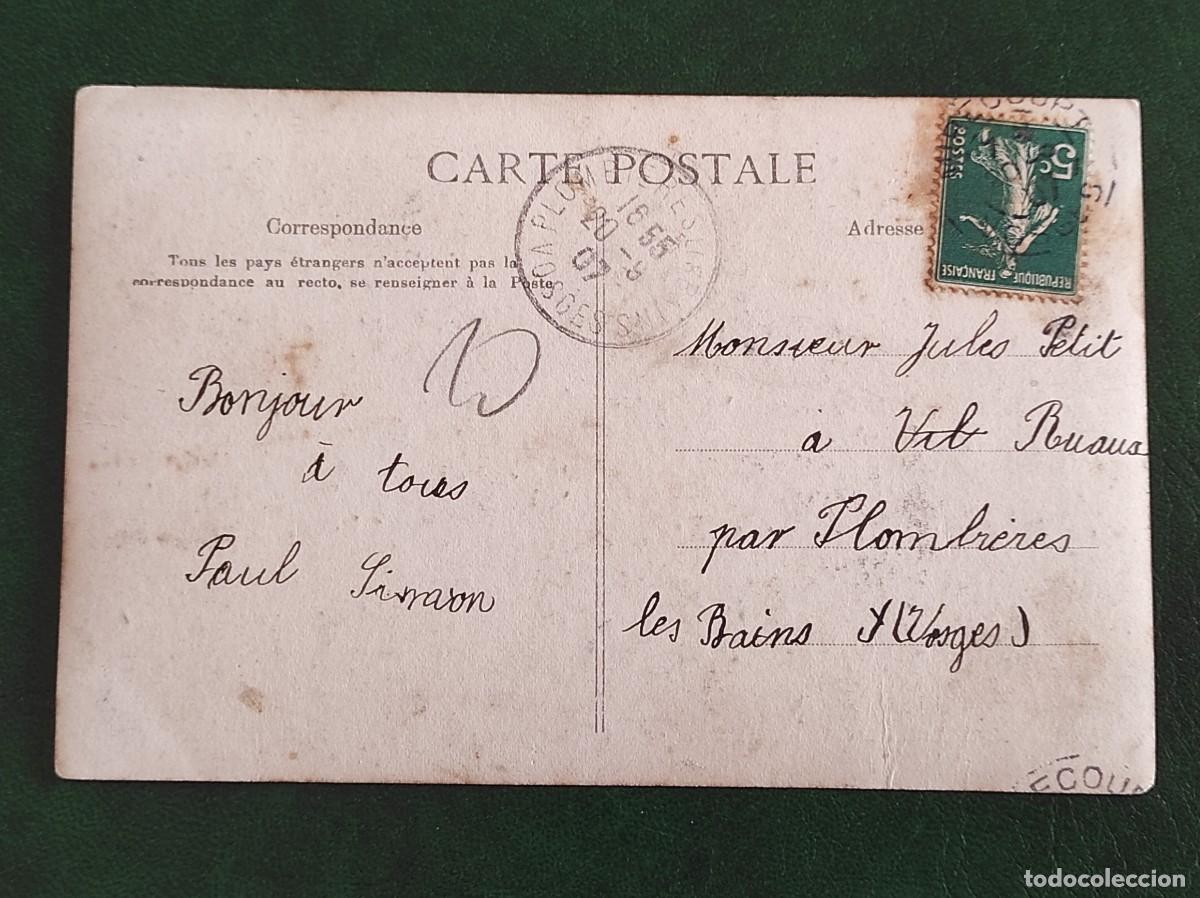 CARTE POSTALE
Correspondance
Tous les pays étrangers n'acceptent pas la
correspondance au recto, se renseigner à la Poste
Bonjour
à tous
Paul Simon
PLOMBIERES LES BAINS
VOSGES
16 55
20 -8
07
Adresse
5c
POSTES
REPUBLIQUE FRANÇAISE
Monsieur Jules Petit
à Vil Ruaux
par Plombières
les Bains (Vosges)
todocoleccion